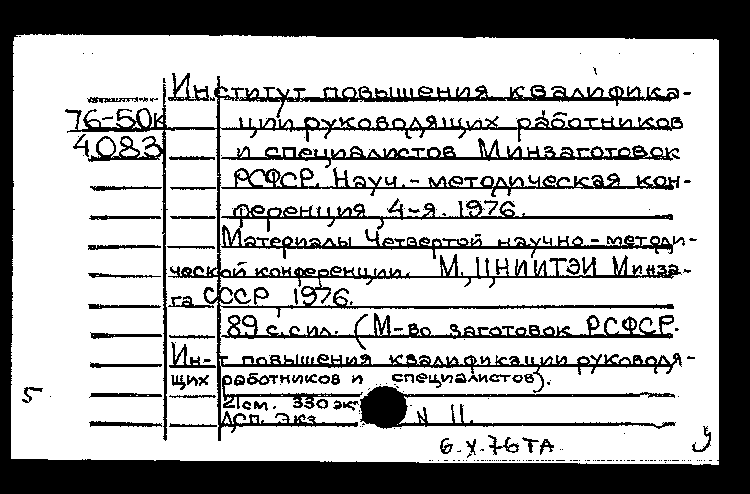 Институт повышения квалифика-
76-50к ции руководящих работников
4083 и специалистов Минзаготовок
РСФСР. Науч.-методическая кон-
ференция, 4-я. 1976.
Материалы Четвертой научно-методи-
ческой конференции. М., ЦНИИТЭИ Минза-
га СССР, 1976.
89 с. с ил. (М-во заготовок РСФСР.
Ин-т повышения квалификации руководя-
щих работников и специалистов).
5 21 см. 330 эк
Дсп. Экз. N 11.
6.X.76 ТА